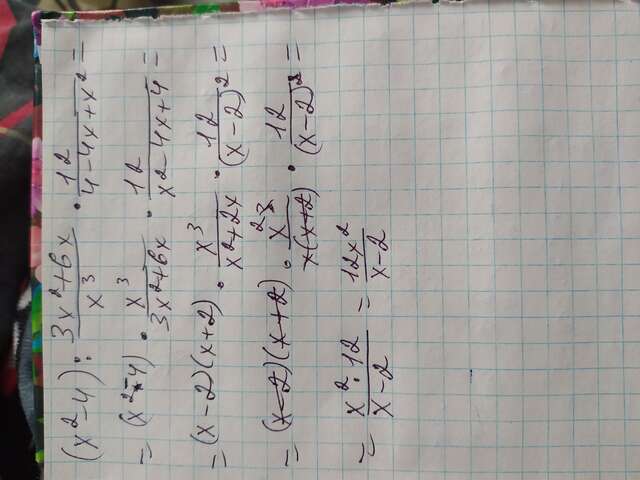 (x²-4) : (3x²+6x)/x³ · 12/(4-4x+x²) =
= (x²-4) · x³/(3x²+6x) · 12/(x²-4x+4) =
= (x-2)(x+2) · x³/(x²+2x) · 12/(x-2)² =
= (x-2)(x+2) · x²/(x(x+2)) · 12/(x-2)² =
= (x²·12)/(x-2) = 12x²/(x-2)